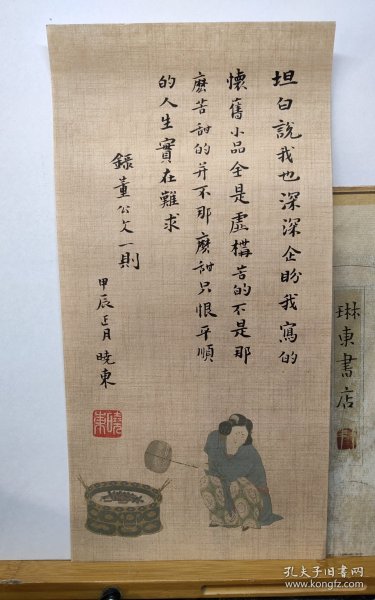 坦白說我也深深企盼我寫的
懷舊小品全是虛構苦的不是那
麽苦甜的并不那麽甜只恨平順
的人生實在難求
錄董公文一則
甲辰正月曉東
曉東
琳東書店
孔夫子旧书网
www.kongfz.com